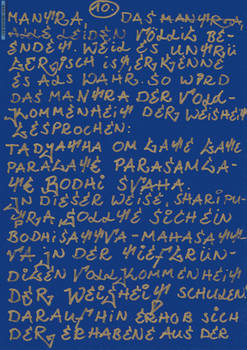 10.
MANTRA, DAS MANTRA,
ALLE LEIDEN VÖLLIG BE-
ENDET. WEIL ES UNTRÜ
GERISCH IST, ERKENNE
ES ALS WAHR. SO WIRD
DAS MANTRA DER VOLL-
KOMMENHEIT DER WEISHEIT
GESPROCHEN:
TADYATHA OM GATE GATE
PARAGATE PARASAMGA-
TE BODHI SVAHA.
IN DIESER WEISE, SHARIPU-
TRA, SOLLTE SICH EIN
BODHISATTVA-MAHASATT
VA IN DER TIEFGRÜN-
DIGEN VOLLKOMMENHEIT
DER WEISHEIT SCHULEN.
DARAUFHIN ERHOB SICH
DER ERHABENE AUS DER